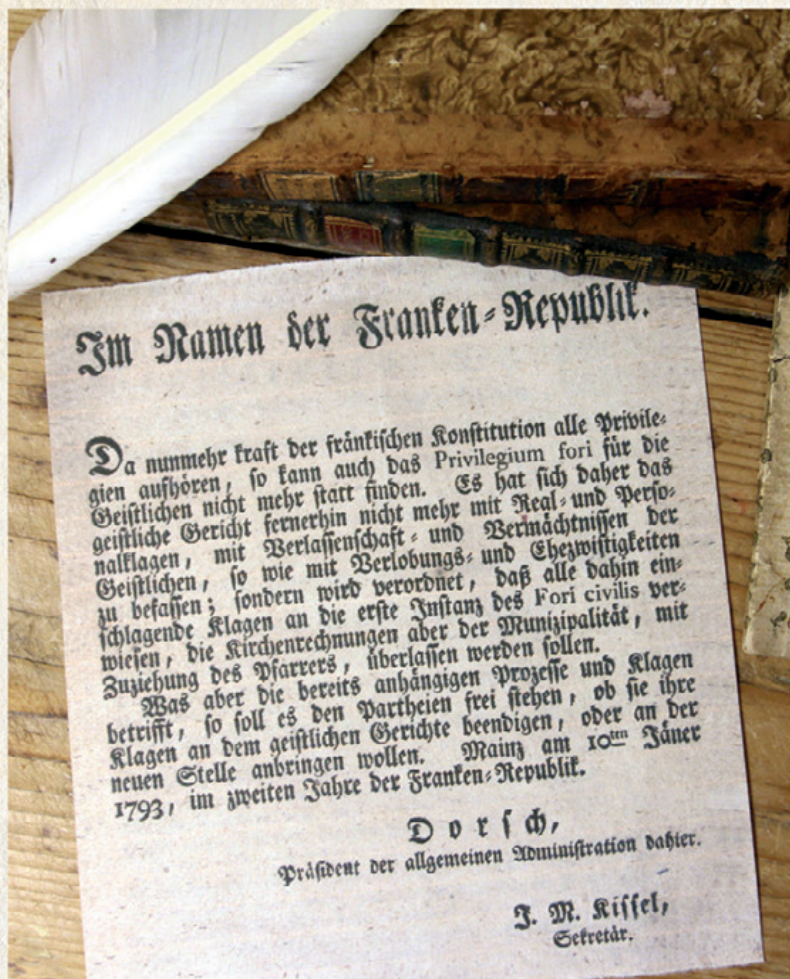 Im Namen der Franken-Republik.
Da nunmehr kraft der fränkischen Konstitution alle Privile-
gien aufhören, so kann auch das Privilegium fori für die
Geistlichen nicht mehr statt finden. Es hat sich daher das
geistliche Gericht fernerhin nicht mehr mit Real- und Perso-
nalklagen, mit Verlassenschaft- und Vermächtnissen der
Geistlichen, so wie mit Verlobungs- und Ehezwistigkeiten
zu befassen; sondern wird verordnet, daß alle dahin ein-
schlagende Klagen an die erste Instanz des Fori civilis ver-
wiesen, die Kirchenrechnungen aber der Munizipalität, mit
Zuziehung des Pfarrers, überlassen werden sollen.
Was aber die bereits anhängigen Prozesse und Klagen
betrifft, so soll es den Partheien frei stehen, ob sie ihre
Klagen an dem geistlichen Gerichte beendigen, oder an der
neuen Stelle anbringen wollen. Mainz am 10ten Jäner
1793, im zweiten Jahre der Franken-Republik.
Dorsch,
Präsident der allgemeinen Administration dahier.
J. M. Kissel,
Sekretär.